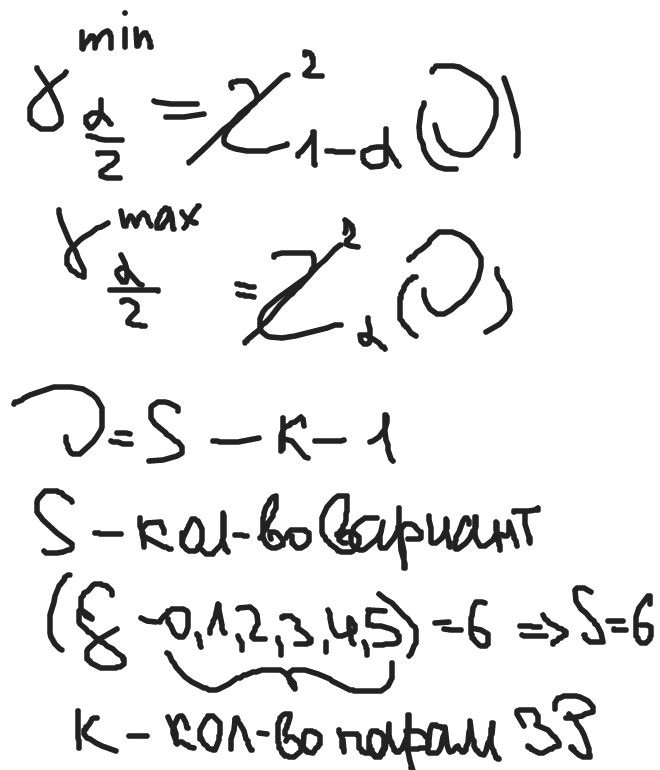 γ min α/2 = χ² 1-α (ν)
γ max α/2 = χ² α (ν)
ν = S - K - 1
S - кол-во вариант
(ξ - 0,1,2,3,4,5) = 6 ⇒ S=6
K - кол-во парам ЗР